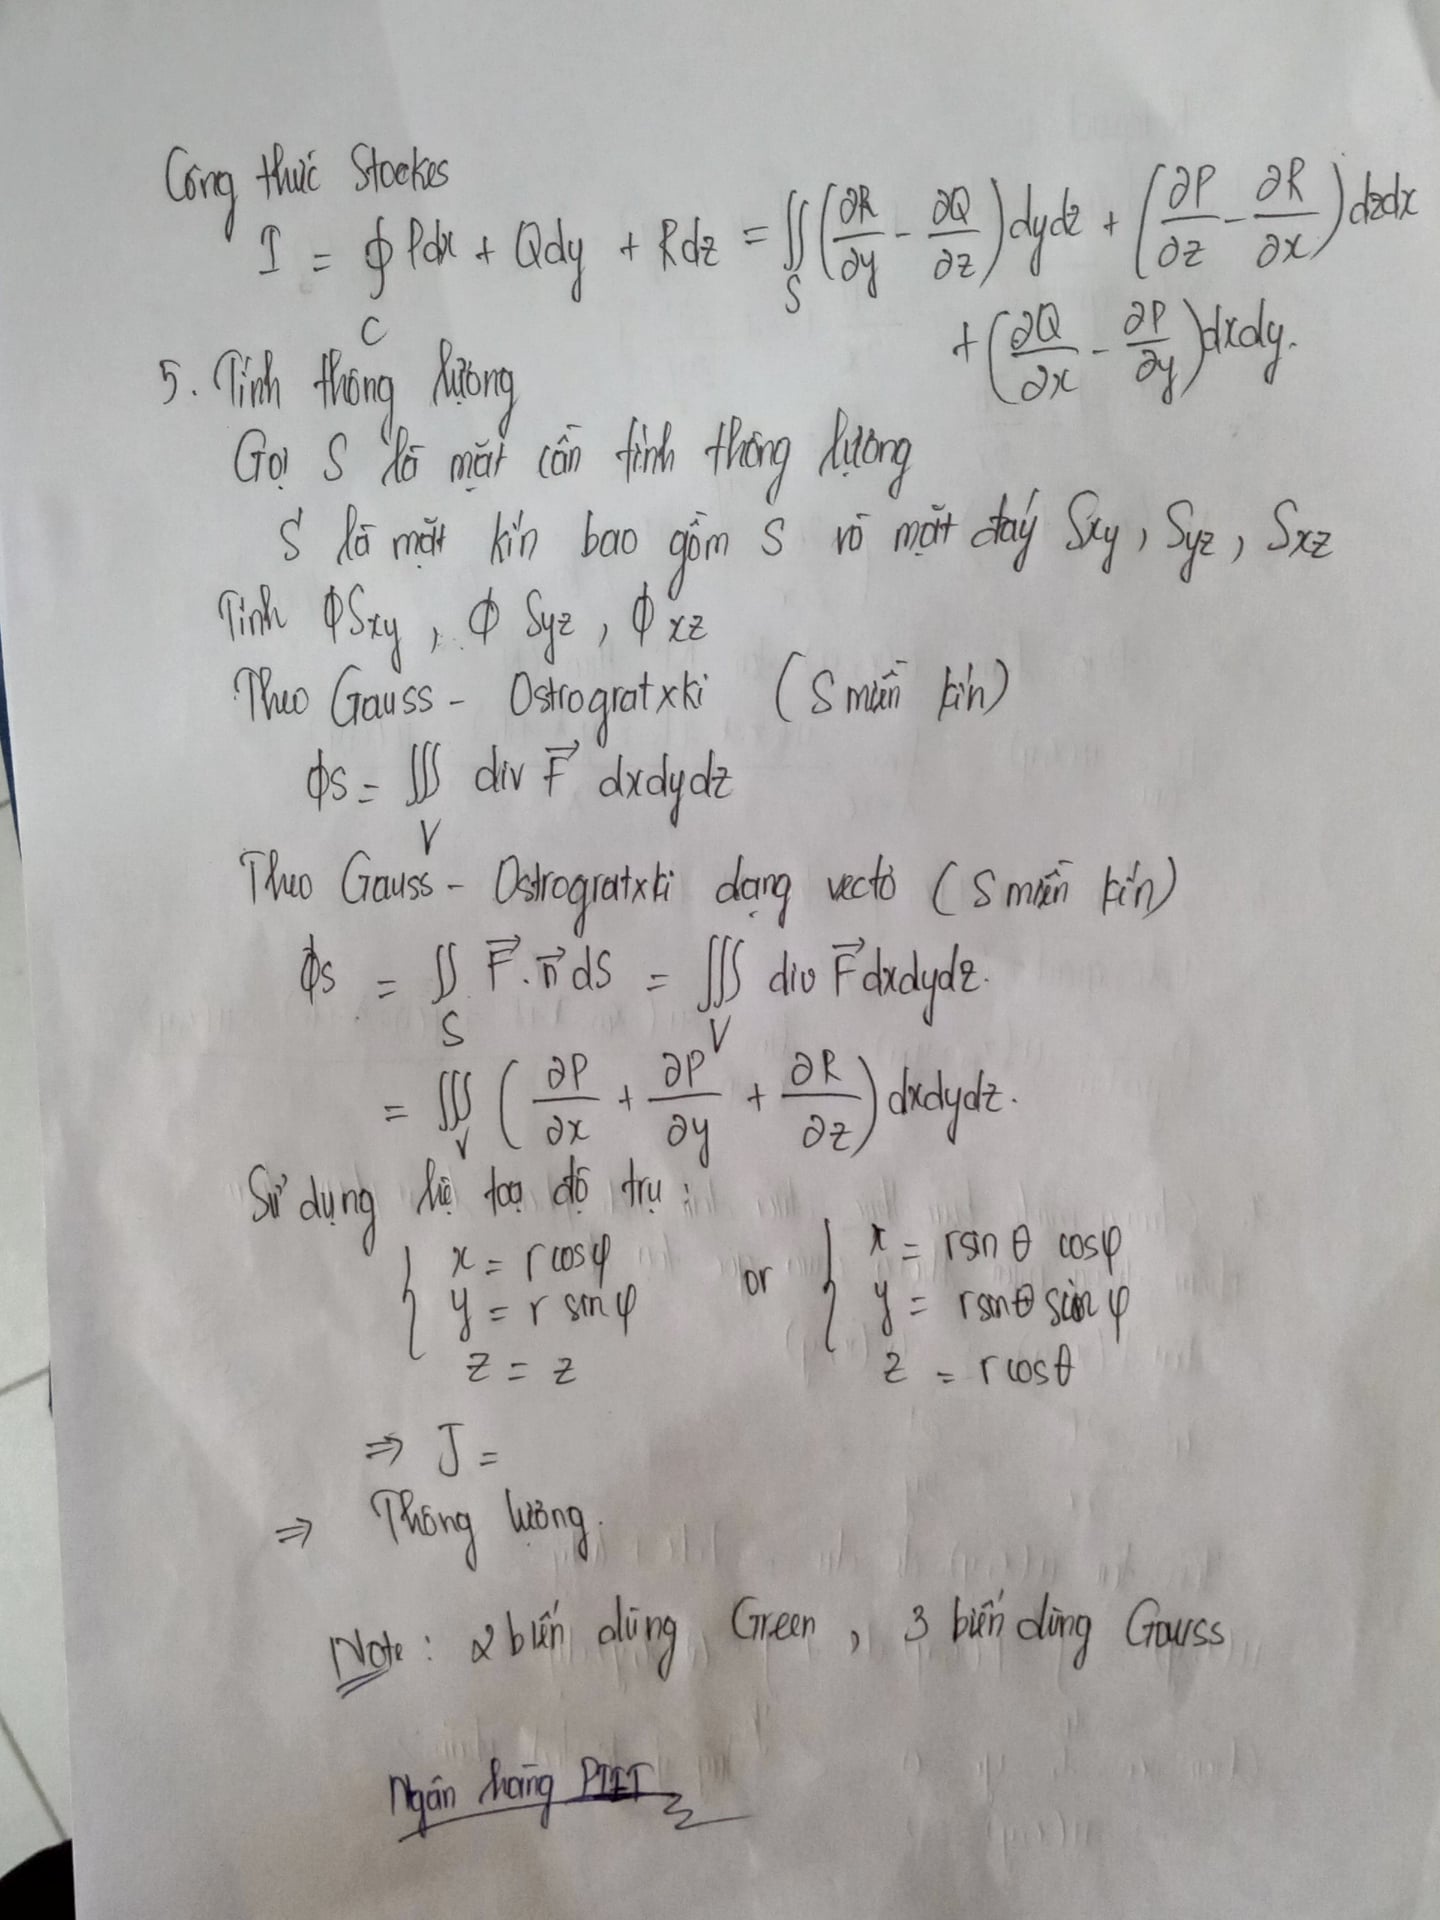 Công thức Stockes
I = ∮_C Pdx + Qdy + Rdz = ∬_S (∂R/∂y - ∂Q/∂z) dydz + (∂P/∂z - ∂R/∂x) dzdx
+ (∂Q/∂x - ∂P/∂y) dxdy.
5. Tính thông lượng
Gọi S là mặt cần tính thông lượng
S' là mặt kín bao gồm S và mặt đáy Sxy, Syz, Sxz
Tính ϕSxy, ϕ Syz, ϕ xz
Theo Gauss - Ostrogratxki (S miền kín)
ϕS = ∭_V div F⃗ dxdydz
Theo Gauss - Ostrogratxki dạng vectơ (S miền kín)
ϕS = ∬_S F⃗.n⃗ dS = ∭_V div F⃗ dxdydz.
= ∭_V (∂P/∂x + ∂P/∂y + ∂R/∂z) dxdydz.
Sử dụng hệ toạ độ trụ :
{ x = r cosφ or { x = rsin θ cosφ
y = r sinφ y = rsinθ sin φ
z = z z = r cosθ
⇒ J =
⇒ Thông lượng.
Note : 2 biến dùng Green, 3 biến dùng Gauss
Ngân hàng PTIT